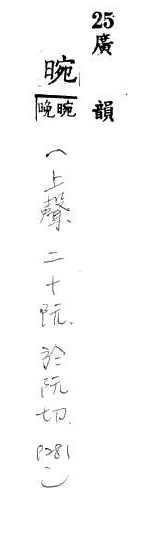 25廣韻
晼
晼晚
(上聲.二十阮.於阮切.P281)